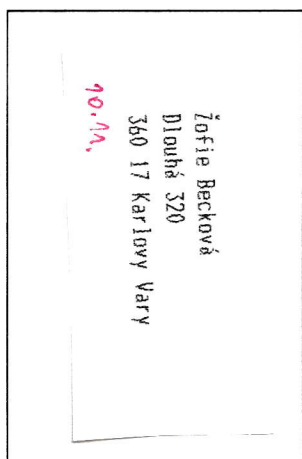 Žofie Becková
Dlouhá 320
360 17 Karlovy Vary
10.11.